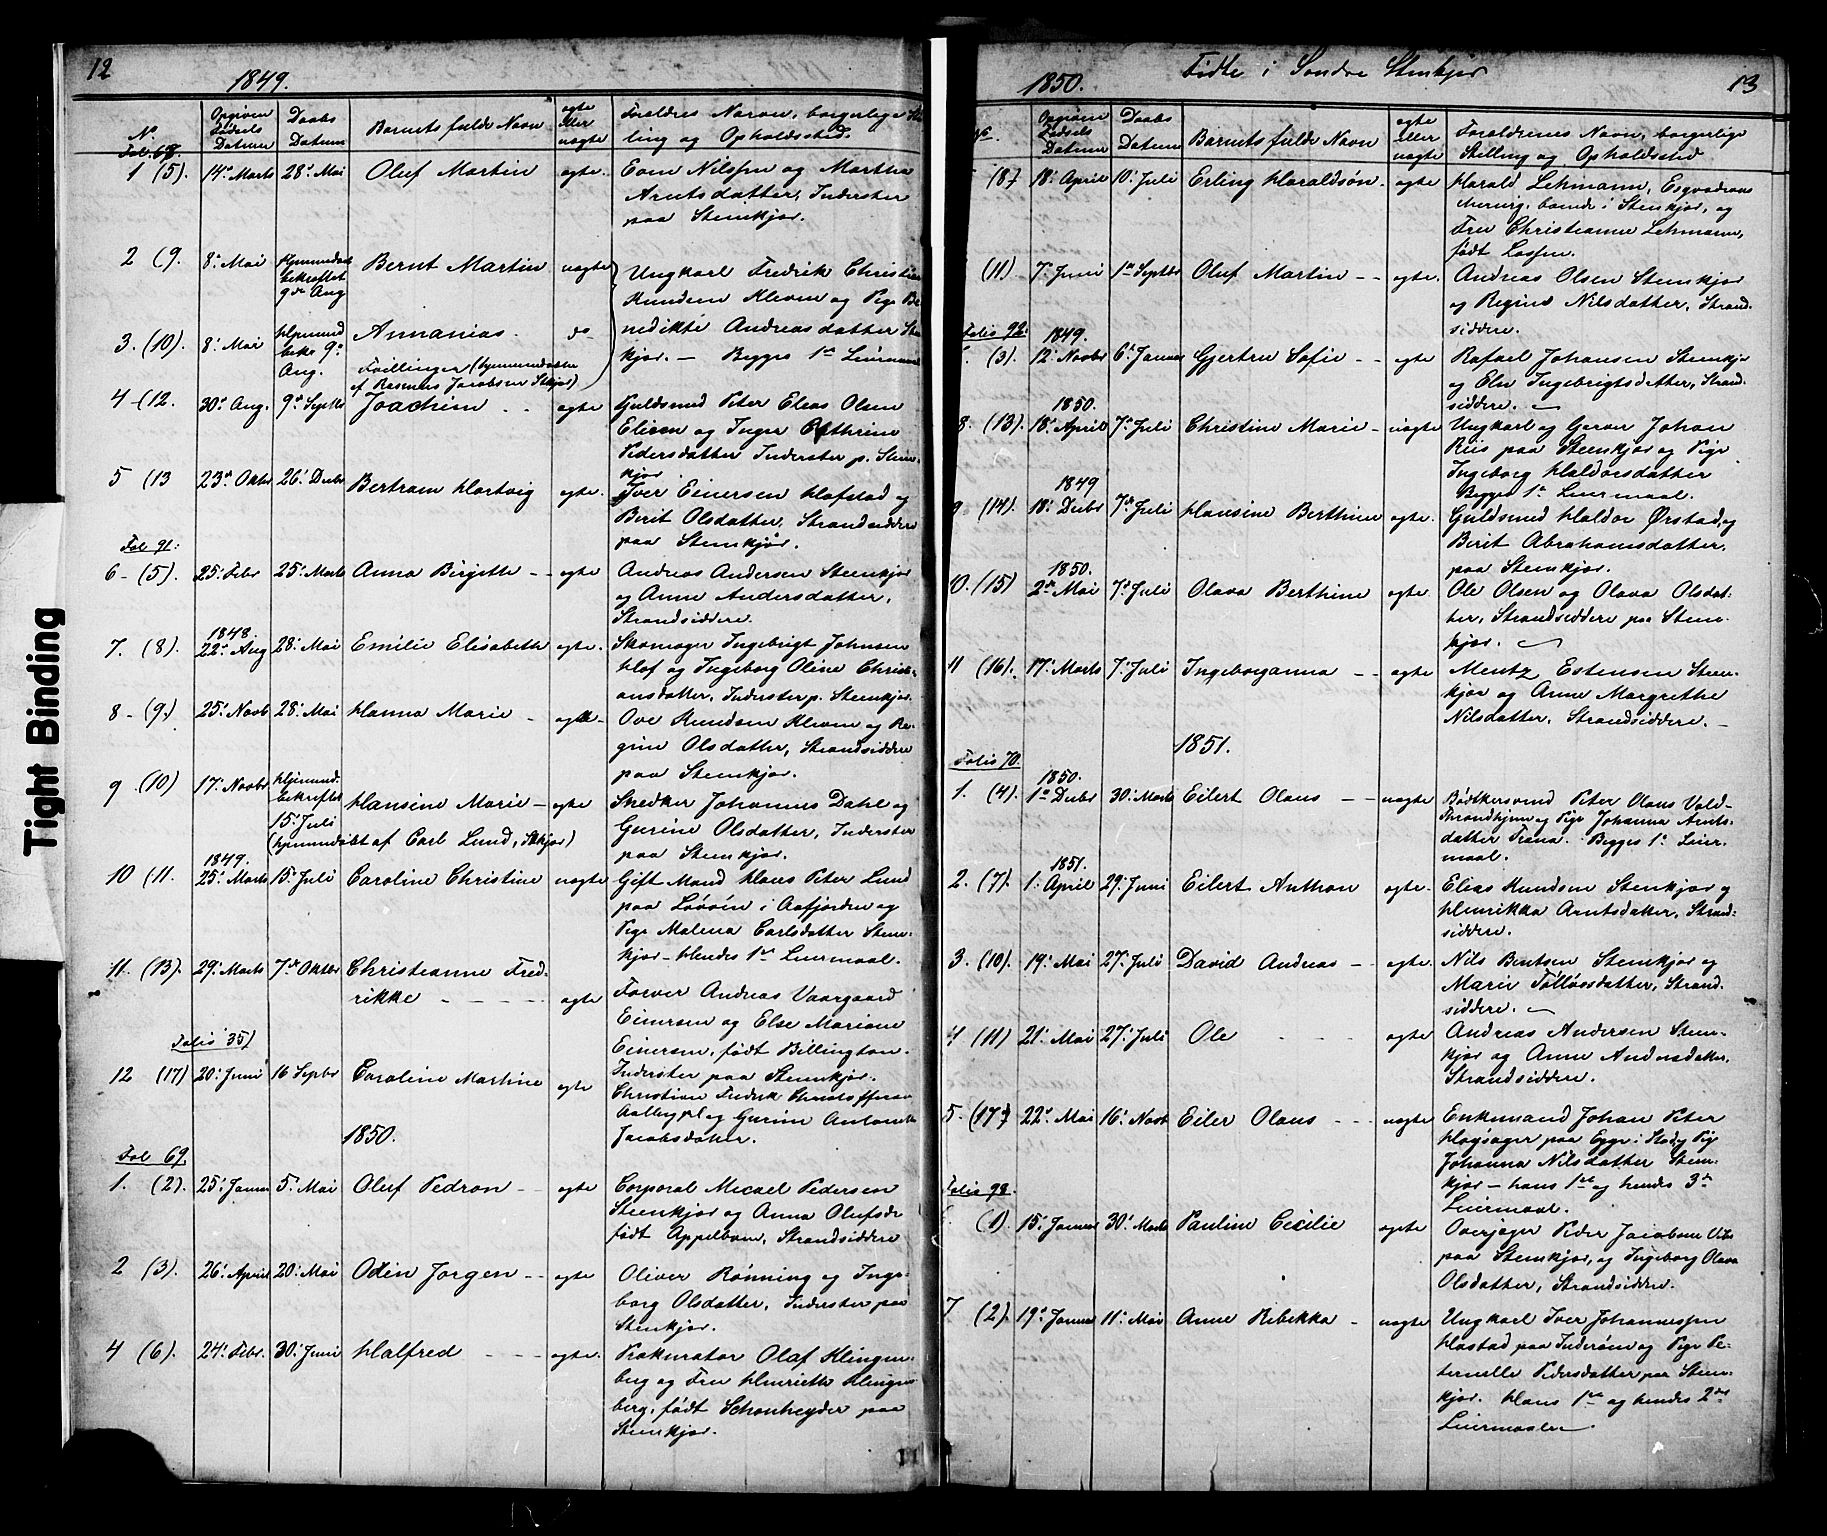 12
1849.
No
Opgiven Fødsels Datum
Daabs Datum
Barnets fulde Navn
ægte eller uægte
Forældres Navn, borgerlige Stilling og Opholdssted.
Fol. 68.
1 (5). 14de Marts 28de Mai Oluf Martin ægte. Even Nilssen og Martha
Arntsdatter, Inderster
paa Stenkjær.
2 (9. 8de Mai Hjemmedøbt bekræftet 9de Aug Bernt Martin uægte Ungkarl Fredrik Christian
Knudsen Kleven og Pige Be-
3. (10). 8de Mai Hjemmd bekr 9de Aug. Annanias. do nedikte Andreasdatter Sten
kjær. — Begges 1ste Leiermaal
Tvillinger (hjemmedøbte
af Rasmus Jacobsen Stkjær)
4 - (12. 30te Aug. 9de Septbr Joachim - - ægte Guldsmed Peter Elias Olsen
Elisen og Inger Cathrine
Pedersdatter Inderster p. Sten-
kjær
5 (13 23de Oktbr 26de Decbr Bertram Hartvig ægte. Iver Einersen Hafstad og
Berit Olsdatter, Strandsiddere
paa Stenkjær.
Fol 91:
6 - (5). 25de Febr 25de Marts Anna Birgitte - - ægte Andreas Andersen Steenkjær
og Anne Andersdatter,
Strandsiddere.
7. (8). 1848. 22de Aug 28de Mai Emilie Elisabeth ægte. Skomager Ingebrigt Johnsen
Hof og Ingeborg Oline Christi-
ansdatter, Inderster p. Steenkjær.
8 - (9.) 25de Novb 28de Mai Hanna Marie - ægte - Ove Knudsen Kleven og Re-
gine Olsdatter, Strandsiddere
paa Stenkjær.
9 (10) 17de Novbr Hjemmd. bekræftet 15de Juli Hansine Marie - ægte Snedker Johannes Dahl og
Gurine Olsdatter, Inderster
paa Stenkjær.
(hjemmedøbt af Carl Lund, Stkjær)
10 (11. 1849. 25de Marts 15de Juli Caroline Christine uægte Gift Mand Hans Peter Lund
paa Løvøen i Aafjorden og
Pige Malena Carlsdatter Sten-
kjær - hendes 1ste Leiermaal.
11. (13). 29de Marts 7de Oktbr Christianne Fred-
rikke - - - - ægte Farver Andreas Vaargaard
Einersen og Else Mariane
Einersen, født Billington.
Inderster paa Stenkjær.
Folio 35)
12 (17) 20de Juni 16 Septbr Caroline Martine ægte Christian Fredrik Christoffersen
Aalbergpl og Gurine Antonette
Jacobsdatter.
1850.
Fol 69
1. (2). 25de Januar 5te Mai Oluf Pedron - - ægte Corporal Micael Pedersen
Steenkjær og Anna Olufsdr
født Appelbom, Strandsiddere
2 (3). 26de April 20de Mai Odin Jørgen - - ægte Oliver Rønning og Inge-
borg Olsdatter, Inderster paa
Stenkjær.
4 (6). 24de Febr. 30te Juni Halfred - - - ægte. Prokurator Olaf Klingen-
berg og Fru Henriette Klingen-
berg, født Schønheyder paa
Stenkjær.
11
Tight Binding
1850.
Fødte i Søndre Stenkjær
13
Opgiven Fødsels Datum
Daabs Datum
Barnets fulde Navn
ægte eller uægte
Forældrenes Navn, borgerlige
Stilling og Opholdssted
(8) 18de April 10de Juli Erling Haraldsøn - ægte Harald Lehmann, Esqvadrons
chirurg, boende i Stenkjær, og
Fru Christianne Lehmann,
født Lossen.
(11) 7de Juni 1ste Septbr Oluf Martin - - ægte. Andreas Olsen Stenkjær
og Regine Nilsdatter, Strand-
siddere.
Folio 92:
(3) 1849. 12te Novbr 6te Januar Gjertru Sofie - - ægte Rafael Johansen Steenkjær
og Else Ingebrigtsdatter, Strand-
siddere.
8. (13). 1850. 18de April 7de Juli Christine Marie - uægte Ungkarl og Garver Johan
Riis paa Steenkjær og Pige
Ingeborg Haldorsdatter
Begges 1ste Leiermaal.
9 (14). 1849 18de Decbr 7de Juli Hansine Berthine ægte. Guldsmed Haldor Ørstad og
Berit Abrahamsdatter,
paa Stenkjær.
10. (15) 1850. 2den Mai 7de Juli Olava Berthine ægte. Ole Olsen og Olava Olsdat-
ter, Strandsiddere paa Sten-
kjær.
11 (16). 17de Marts 7de Juli Ingeborganna - - ægte Mentz Estensen Steen-
kjær og Anne Margrethe
Nilsdatter, Strandsiddere. -
1851.
Folio 70.
1. (4). 1850. 1ste Decbr 30te Marts Eilert Olaus - - uægte Bødtkersvend Peter Olaus Vold
Throndhjem og Pige Johanna Arnts-
datter Trana. Begges 1ste Leier-
maal.
2. (7). 1851. 1ste April 29de Juni Eilert Anthon ægte. Elias Knudsen Stenkjær og
Henrikka Arntsdatter, Strand-
siddere.
3. (10). 19de Mai 27de Juli David Andreas - - ægte. Nils Bentsen Steenkjær og
Marie Tølløvsdatter, Strand-
siddere.
4 (11) 21de Mai 27de Juli Ole - - ægte Andreas Andersen Steen-
kjær og Anne Andersdatter,
Strandsiddere.
5. (17) 22de Mai 16de Novb Eiler Olaus - - uægte Enkemand Johan Peter
Hagsager paa Egge i Stod og Pige
Johanna Nilsdatter Steen-
kjær - hans 1ste og hendes 3de
Leiermaal.
Folio 93.
(1) 15de Januar 30te Marts Pauline Cecilie ægte Overjæger Peder Jacobsen
paa Stenkjær, og Ingeborg Olava
Olsdatter, Strandsiddere.
7 (2). 19de Januar 11te Mai Anne Rebekka - uægte Ungkarl Iver Johannessen
Hastad paa Inderøen og Pige Pe-
ternelle Pedersdatter paa Steen-
kjær. Hans 1ste og hendes 2det
Leiermaal.